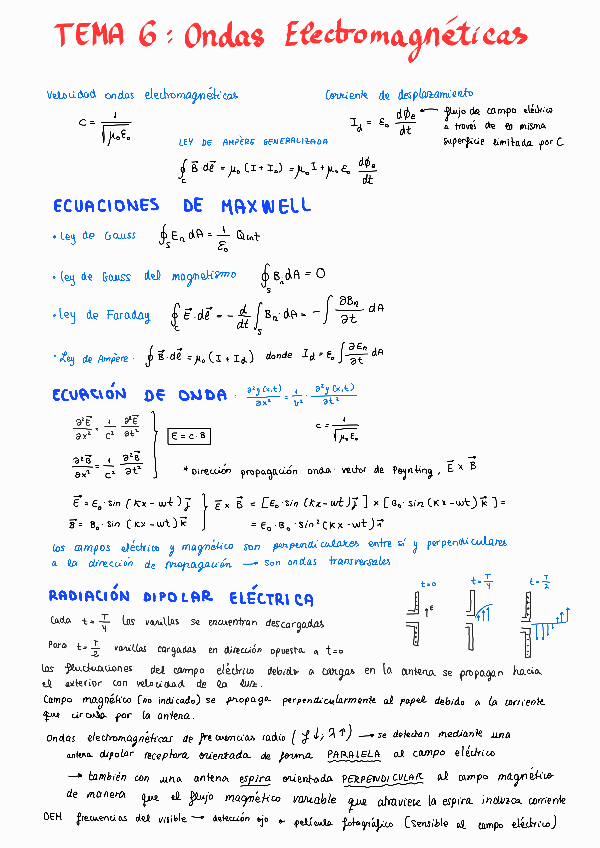 TEMA 6: Ondas Electromagnéticas
Velocidad ondas electromagnéticas
Corriente de desplazamiento
c = 1/√μ₀ε₀
I_d = ε₀ dϕₑ/dt ← flujo de campo eléctrico
a través de la misma
superficie limitada por C
LEY DE AMPÈRE GENERALIZADA
∮_C B⃗ dℓ⃗ = μ₀ (I + I_d) = μ₀ I + μ₀ ε₀ dϕₑ/dt
ECUACIONES DE MAXWELL
• Ley de Gauss ∮_S Eₙ dA = 1/ε₀ Qint
• Ley de Gauss del magnetismo ∮_S Bₙ dA = 0
• Ley de Faraday ∮_C E⃗·dℓ⃗ = - d/dt ∫_S Bₙ·dA = - ∫ ∂Bₙ/∂t dA
• Ley de Ampère · ∮ B⃗·dℓ⃗ = μ₀ (I + I_d) donde I_d = ε₀ ∫ ∂Eₙ/∂t dA
ECUACIÓN DE ONDA · ∂²y(x,t)/∂x² = 1/v² · ∂²y(x,t)/∂t²
∂²E⃗/∂x² = 1/c² ∂²E⃗/∂t²
E = c·B
c = 1/√μ₀ε₀
∂²B⃗/∂x² = 1/c² ∂²B⃗/∂t²
* Dirección propagación onda · vector de Poynting, E⃗ × B⃗
E⃗ = E₀·sin (kx - wt) j⃗ } E⃗ × B⃗ = [E₀·sin (kx - wt) j⃗] × [B₀·sin (kx - wt) k⃗] =
B⃗ = B₀·sin (kx - wt) k⃗ = E₀·B₀·sin² (kx - wt) i⃗
Los campos eléctrico y magnético son perpendiculares entre sí y perpendiculares
a la dirección de propagación → son ondas transversales
t=0 t=T/4 t=T/2
RADIACIÓN DIPOLAR ELÉCTRICA
E
Cada t = T/4 las varillas se encuentran descargadas
Para t = T/2 varillas cargadas en dirección opuesta a t=0
Las fluctuaciones del campo eléctrico debido a cargas en la antena se propagan hacia
el exterior con velocidad de la luz.
Campo magnético (no indicado) se propaga perpendicularmente al papel debido a la corriente
que circula por la antena.
Ondas electromagnéticas de frecuencias radio (f↓, λ↑) → se detectan mediante una
antena dipolar receptora orientada de forma PARALELA al campo eléctrico
→ también con una antena espira orientada PERPENDICULAR al campo magnético
de manera que el flujo magnético variable que atraviese la espira induzca corriente
OEM frecuencias del visible → detección ojo o película fotográfica (sensible al campo eléctrico)